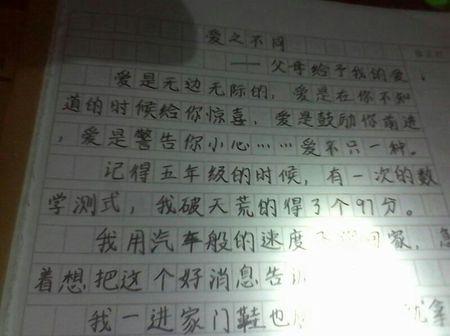 爱之不同
——父母给予我的爱
爱是无边无际的，爱是在你不知
道的时候给你惊喜，爱是鼓励你前进
，爱是警告你小心……爱不只一种。
记得五年级的时候，有一次的数
学测式，我破天荒的得了个97分。
我用汽车般的速度 家，急
着想把这个好消息告
我一进家门鞋也